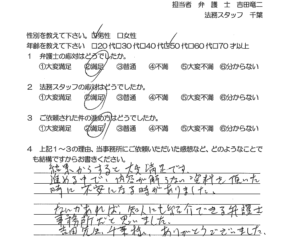 担当者 弁護士 吉田竜二
法務スタッフ 千葉
性別を教えて下さい。 ☑男性 □女性
年齢を教えて下さい □20代 □30代 □40代 ☑50代 □60代 □70才以上
1 弁護士の応対はどうでしたか。
①大変満足 ②満足 ③普通 ④不満 ⑤大変不満 ⑥分からない
2 法務スタッフの応対はどうでしたか。
①大変満足 ②満足 ③普通 ④不満 ⑤大変不満 ⑥分からない
3 ご依頼された件の進め方はどうでしたか。
①大変満足 ②満足 ③普通 ④不満 ⑤大変不満 ⑥分からない
4 上記1~3の理由、当事務所にご依頼いただいた感想など、どのようなことで
も結構ですからお書きください。
結果からすると大満足です。
進め方で、内容が解らない資料を頂いた
時に不安になる時がありました。
なにかあれば、知人にも紹介できる弁護士
事務所だと思いました。
吉田先生、千葉様、ありがとうございました。